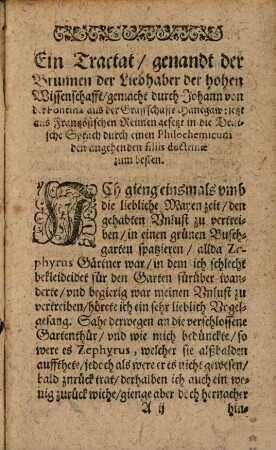 Ein Tractat / genandt der
Brunnen der Liebhaber der hohen
Wissenschafft / gemacht durch Johann von
der Fontina aus der Graffschafft Hanegaw : jetzt
aus Französischen Reimen gesetzt in die Deut-
sche Sprach durch einen Philochemicum
den angehenden filiis doctrinæ
zum besten.
ICh gieng einsmals vmb
die liebliche Mayen zeit / den
gehabten Vnlust zu vertrei-
ben / in einen grünen Busch-
garten spatzieren / allda Ze-
phyrus Gärtner war / in dem ich schlecht
bekleideidet für den Garten fürüber wan-
derte / vnd begierig war meinen Vnlust zu
vertreiben / hörete ich ein sehr lieblich Vogel-
gesang. Sahe derwegen an die verschlossene
Gartenthür / vnd wie mich bedünckte / so
were es Zephyrus, welcher sie alßbalden
auffthet / jedoch als were er es nicht gewesen /
bald zurück trat / derhalben ich auch ein we-
nig zurück wiche / gienge aber doch hernacher
A ij hin-